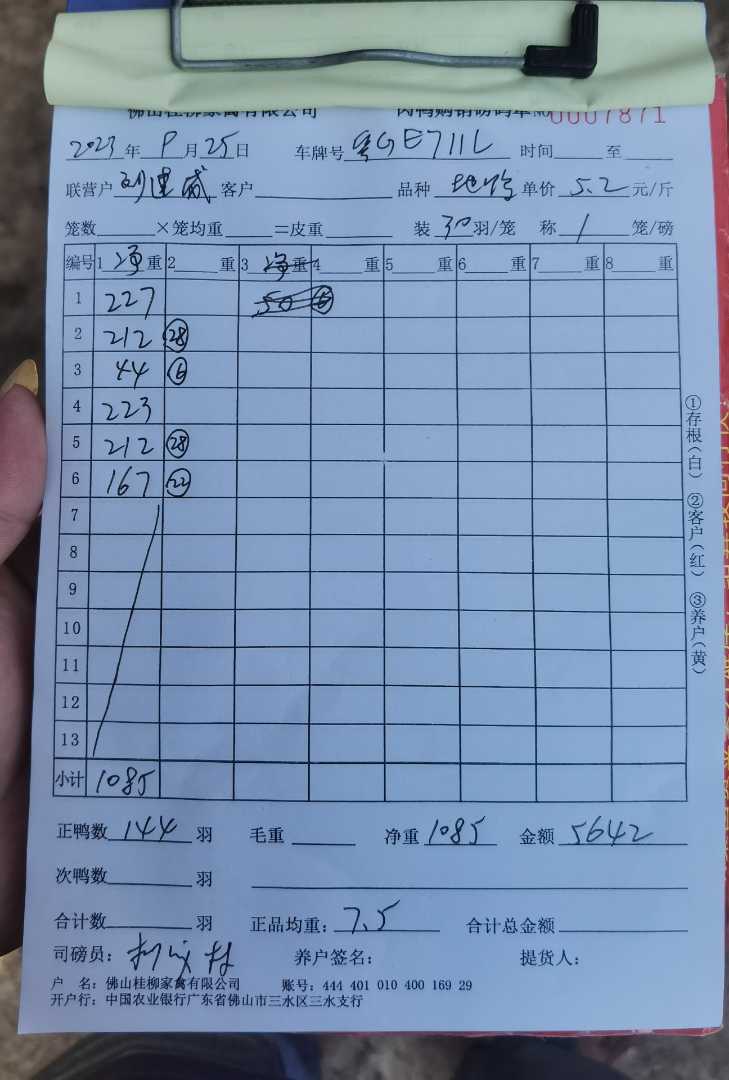 佛山桂柳家禽有限公司 肉鸭购销磅码单 № 0007871
2023年 8月25日 车牌号 粤GE711L 时间 至
联营户 刘建威 客户 品种 单价 5.2 元/斤
笼数 ×笼均重 =皮重 装 30 羽/笼 称 1 笼/磅
编号 1 净重 2 重 3 净重 4 重 5 重 6 重 7 重 8 重
1 227 50 ⑥
2 212 ㉘
3 44 ⑥
4 223
5 212 ㉘
6 167 ㉒
7
8
9
10
11
12
13
小计 1085
正鸭数 144 羽 毛重 净重 1085 金额 5642
次鸭数 羽
合计数 羽 正品均重: 7.5 合计总金额
司磅员: 养户签名: 提货人:
户 名: 佛山桂柳家禽有限公司 账号: 444 401 010 400 169 29
开户行: 中国农业银行广东省佛山市三水区三水支行
①存根(白) ②客户(红) ③养户(黄)